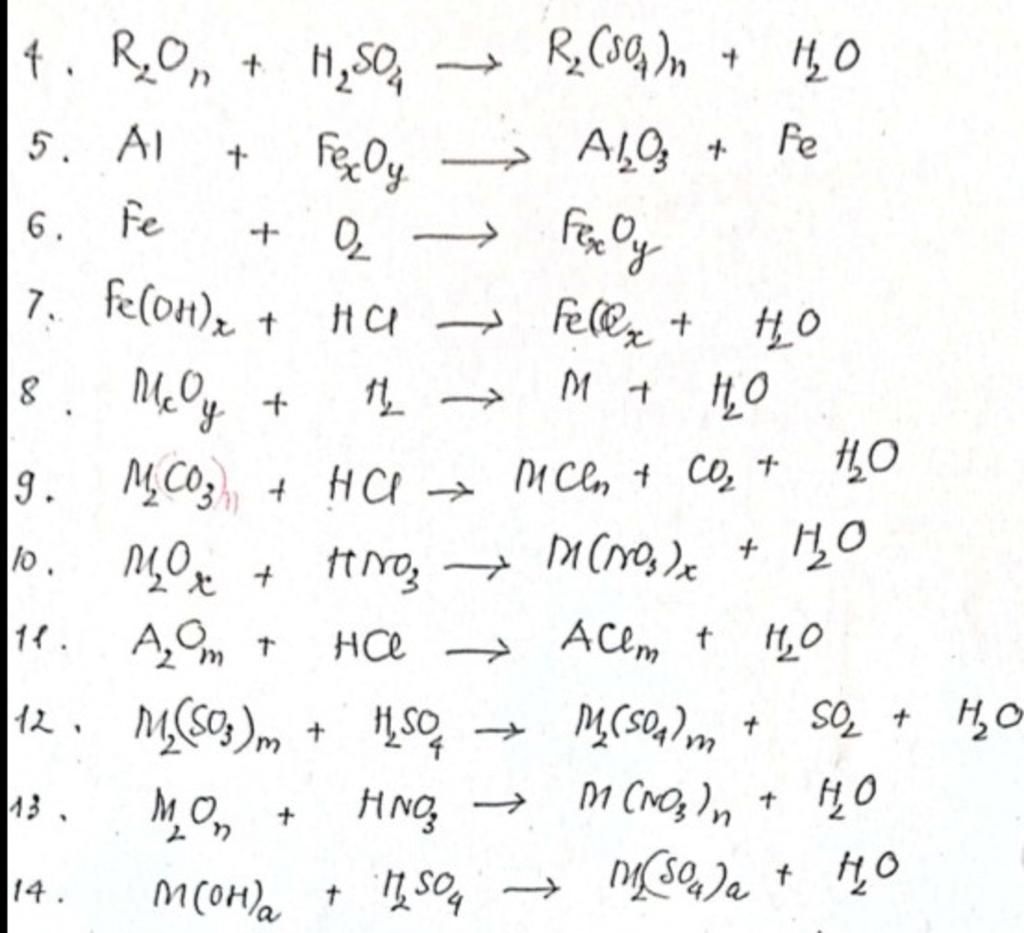 4. R₂Oₙ + H₂SO₄ → R₂(SO₄)ₙ + H₂O
5. Al + FeₓOᵧ → Al₂O₃ + Fe
6. Fe + O₂ → FeₓOᵧ
7. Fe(OH)ₓ + HCl → FeClₓ + H₂O
8. MₓOᵧ + H₂ → M + H₂O
9. M₂(CO₃)ₙ + HCl → MClₙ + CO₂ + H₂O
10. M₂Oₓ + HNO₃ → M(NO₃)ₓ + H₂O
11. A₂Oₘ + HCl → AClₘ + H₂O
12. M₂(SO₃)ₘ + H₂SO₄ → M₂(SO₄)ₘ + SO₂ + H₂O
13. M₂Oₙ + HNO₃ → M(NO₃)ₙ + H₂O
14. M(OH)ₐ + H₂SO₄ → M₂(SO₄)ₐ + H₂O